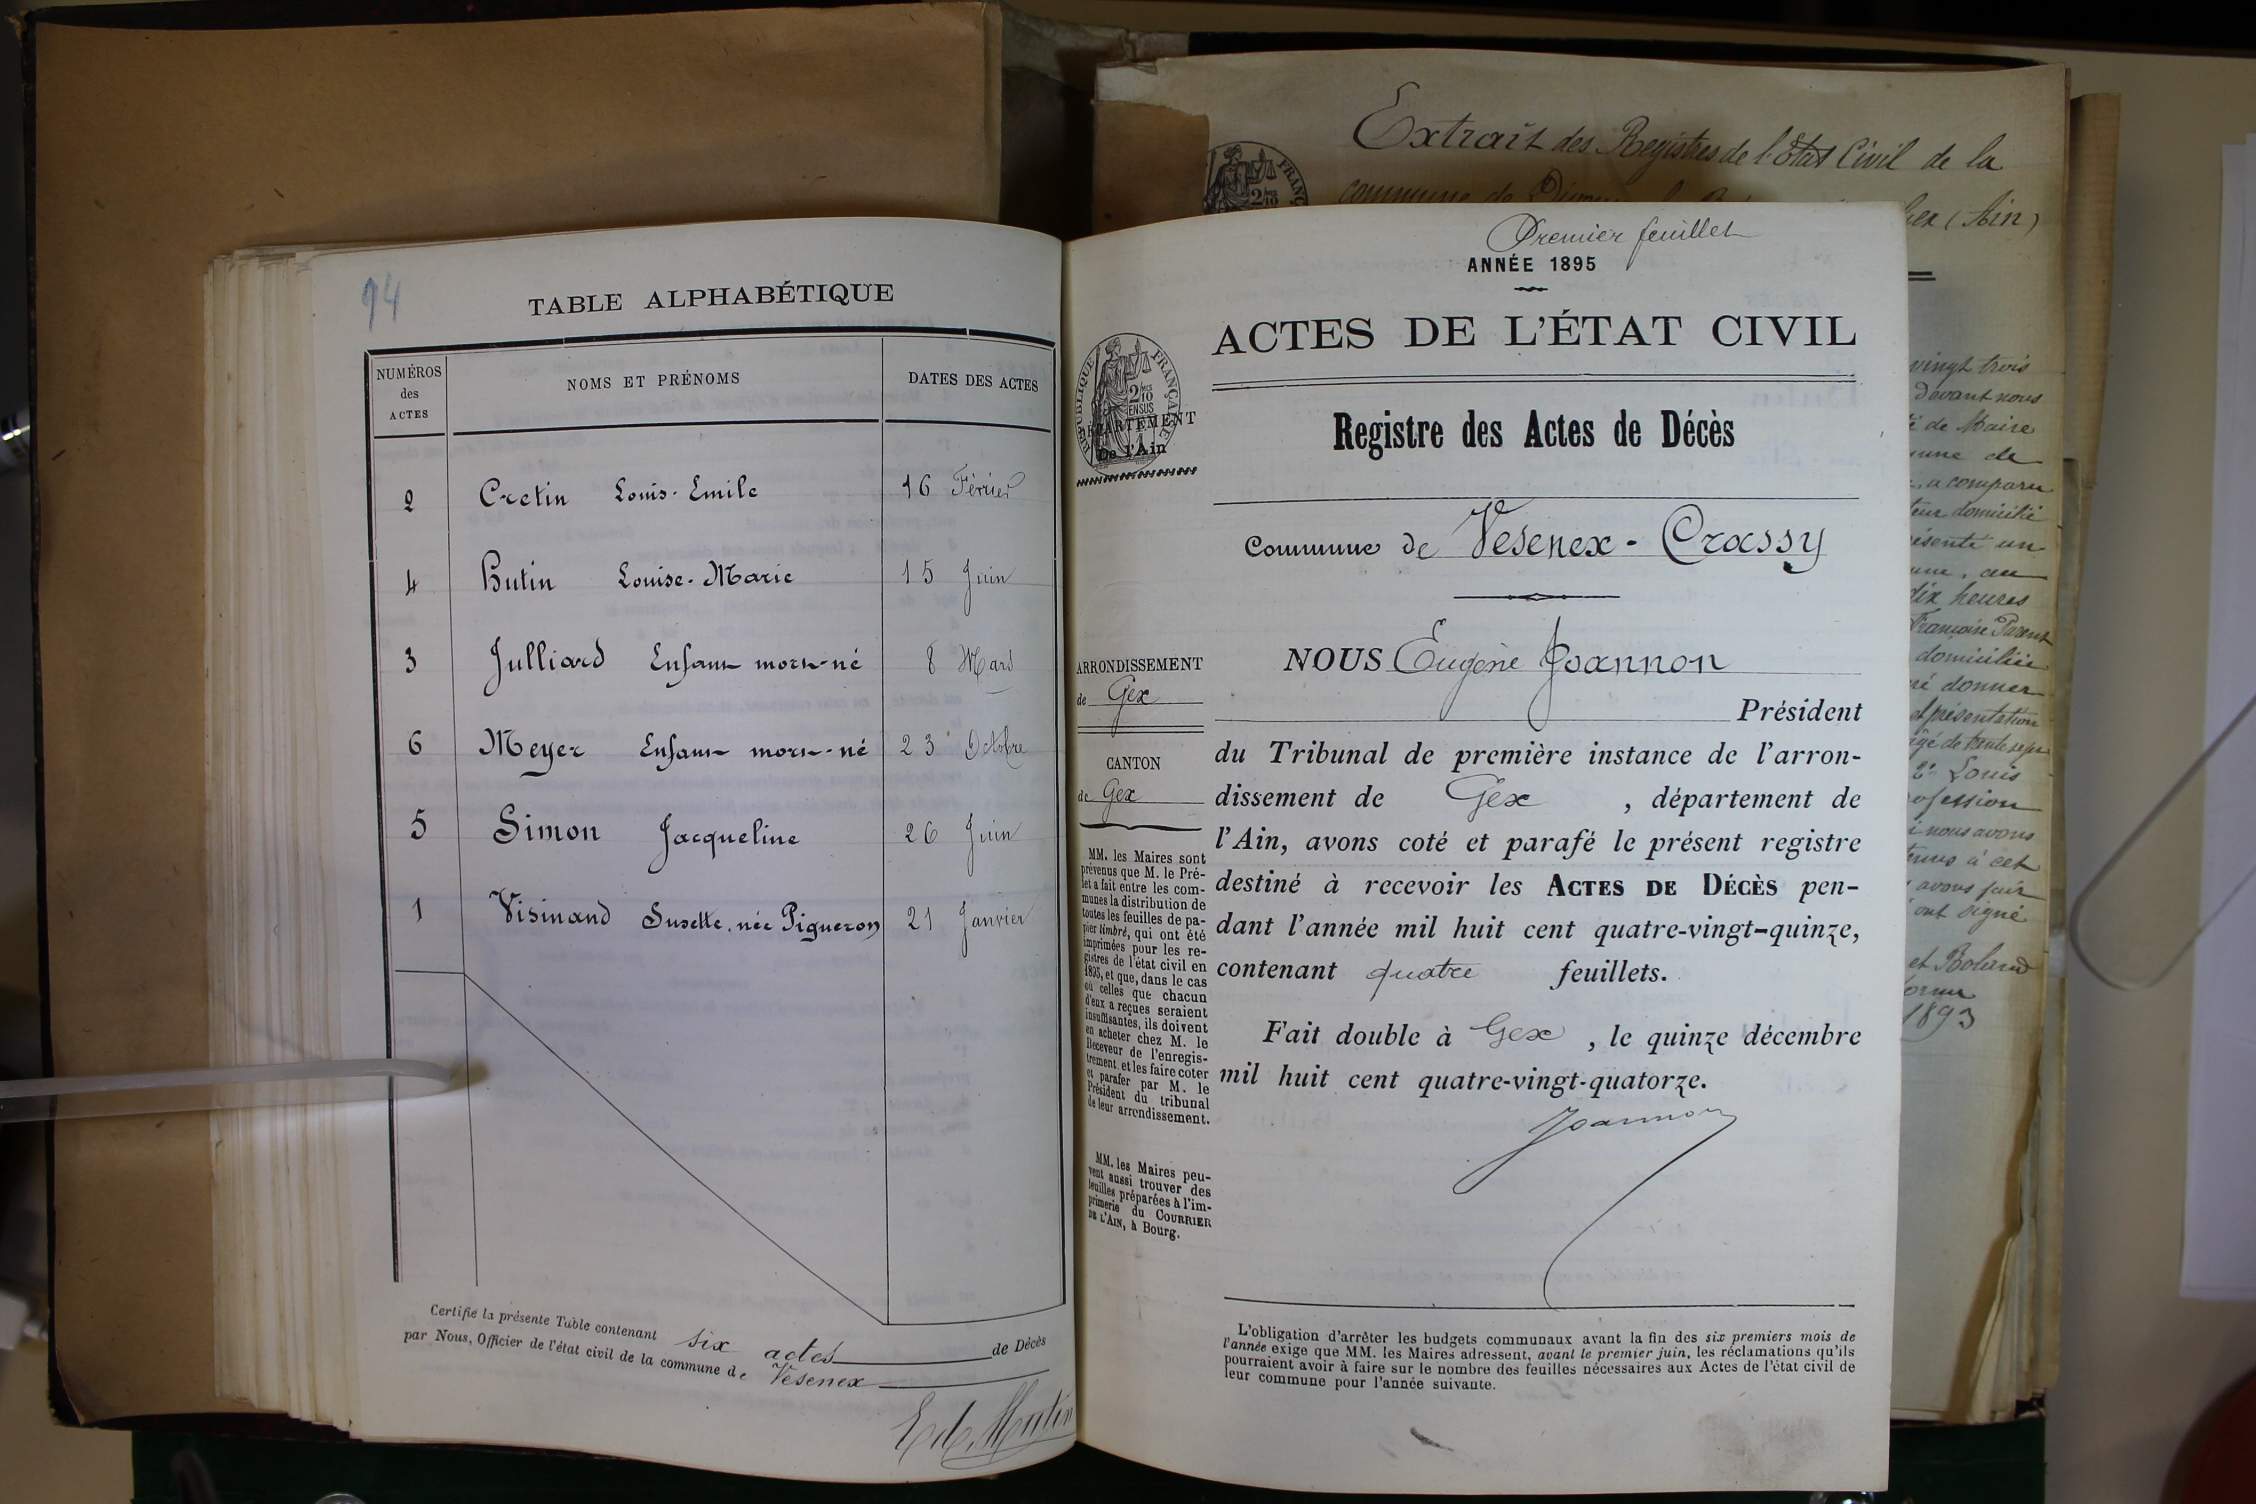 94
TABLE ALPHABÉTIQUE
NUMÉROS des ACTES
NOMS ET PRÉNOMS
DATES DES ACTES
2 Cretin Louis-Emile 16 Février
4 Hutin Louise-Marie 15 Juin
3 Julliard Enfant mort-né 8 Mars
6 Meyer Enfant mort-né 23 Octobre
5 Simon Jacqueline 26 Juin
1 Visinand Susette, née Pigueron 21 Janvier
Certifié la présente Table contenant six actes de Décès
par Nous, Officier de l'état civil de la commune de Vesenex
Premier feuillet
ANNÉE 1895
ACTES DE L'ÉTAT CIVIL
RÉPUBLIQUE FRANÇAISE
DÉPARTEMENT
De l'Ain
Registre des Actes de Décès
Commune de Vesenex-Crassy
ARRONDISSEMENT
de Gex
CANTON
de Gex
MM. les Maires sont
prévenus que M. le Pré-
fet a fait entre les com-
munes la distribution de
toutes les feuilles de pa-
pier timbré, qui ont été
imprimées pour les re-
gistres de l'état civil en
1895, et que, dans le cas
où celles que chacun
d'eux a reçues seraient
insuffisantes, ils doivent
en acheter chez M. le
Receveur de l'enregis-
trement et les faire coter
et parafer par M. le
Président du tribunal
de leur arrondissement.
MM. les Maires peu-
vent aussi trouver des
feuilles préparées à l'im-
primerie du COURRIER
DE L'AIN, à Bourg.
NOUS Eugène Joannon
Président
du Tribunal de première instance de l'arron-
dissement de Gex, département de
l'Ain, avons coté et parafé le présent registre
destiné à recevoir les ACTES DE DÉCÈS pen-
dant l'année mil huit cent quatre-vingt-quinze,
contenant quatre feuillets.
Fait double à Gex, le quinze décembre
mil huit cent quatre-vingt-quatorze.
Joannon
L'obligation d'arrêter les budgets communaux avant la fin des six premiers mois de
l'année exige que MM. les Maires adressent, avant le premier juin, les réclamations qu'ils
pourraient avoir à faire sur le nombre des feuilles nécessaires aux Actes de l'état civil de
leur commune pour l'année suivante.
Extrait des Registres de l'Etat Civil de la
commune de
Gex (Ain)
vingt trois
devant nous
de Maire
de
a comparu
domicilié
un
au
dix heures
Françoise Parent
domiciliée
donner
présentation
âgé de trente sept
2° Louis
nous avons
à cet
avons fait
ont signé
et Roland
1893